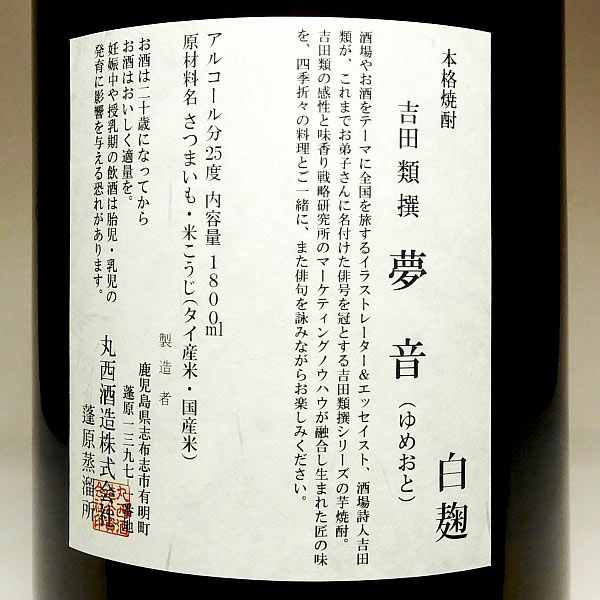 本格焼酎
吉田類撰 夢音(ゆめおと) 白麹
酒場やお酒をテーマに全国を旅するイラストレーター&エッセイスト、酒場詩人吉田
類が、これまでお弟子さんに名付けた俳号を冠とする吉田類撰シリーズの芋焼酎。
吉田類の感性と味香り戦略研究所のマーケティングノウハウが融合し生まれた匠の味
を、四季折々の料理とご一緒に、また俳句を詠みながらお楽しみください。
アルコール分25度 内容量 1800ml
原材料名 さつまいも・米こうじ(タイ産米・国産米)
製造者
鹿児島県志布志市有明町
蓬原一三九七-一番地
丸西酒造株式会社
蓬原蒸溜所
お酒は二十歳になってから
お酒はおいしく適量を。
妊娠中や授乳期の飲酒は胎児・乳児の
発育に影響を与える恐れがあります。